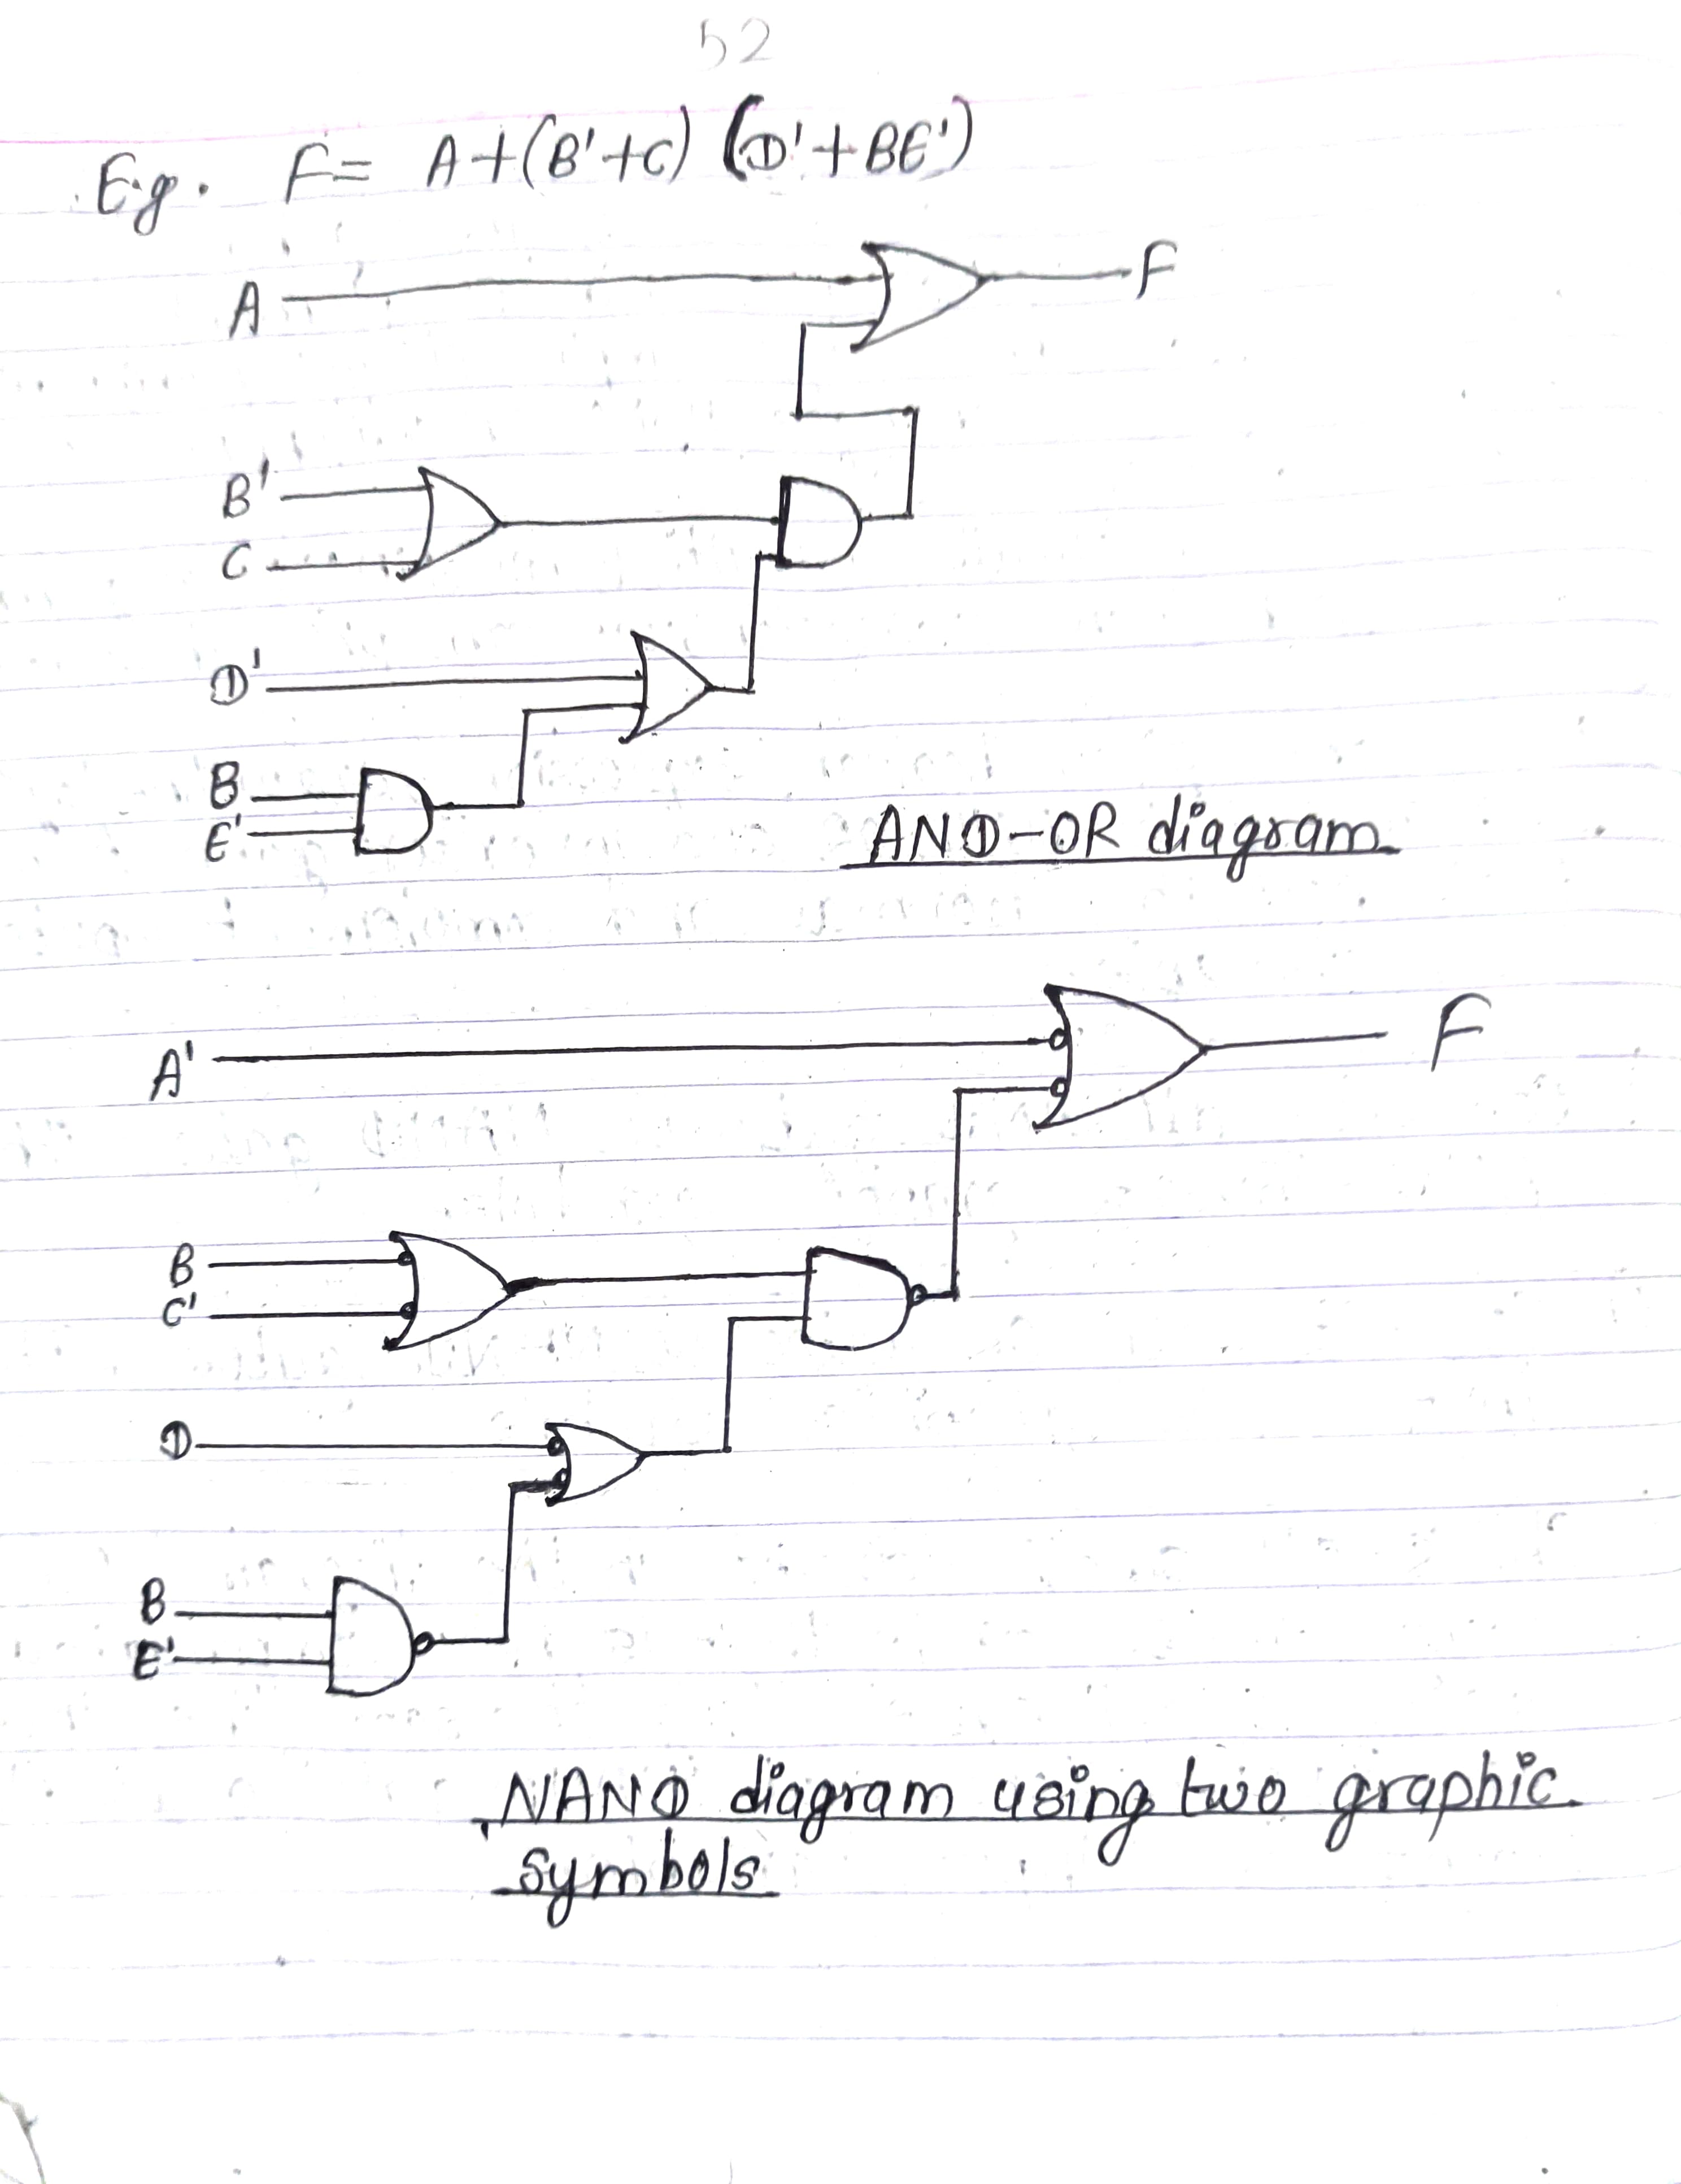 52
Eg. F= A+(B'+C) (D'+BE')
A
F
B'
C
D'
B
E'
AND-OR diagram
A'
F
B
C'
D
B
E'
NAND diagram using two graphic
symbols